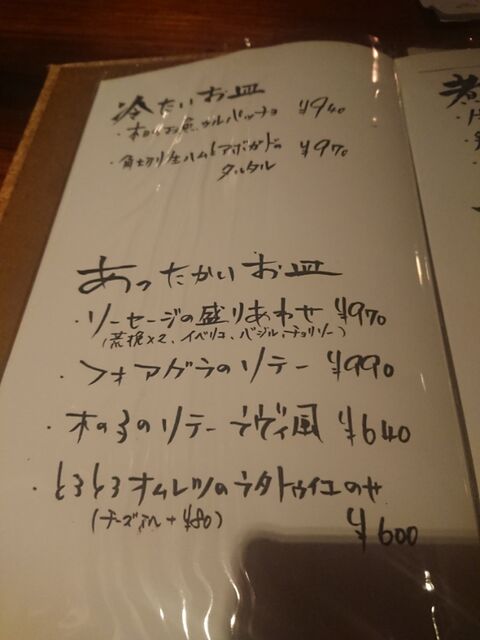 冷たいお皿
・本日のお魚カルパッチョ ¥940
・角切り生ハムとアボガドの ¥970
タルタル
あったかいお皿
・ソーセージの盛りあわせ ¥970
(荒挽×2、イベリコ、バジル、チョリソー)
・フォアグラのソテー ¥990
・木の子のソテー ラヴィ風 ¥640
・とろとろオムレツのラタトゥイユのせ
(チーズin+¥80)
¥600